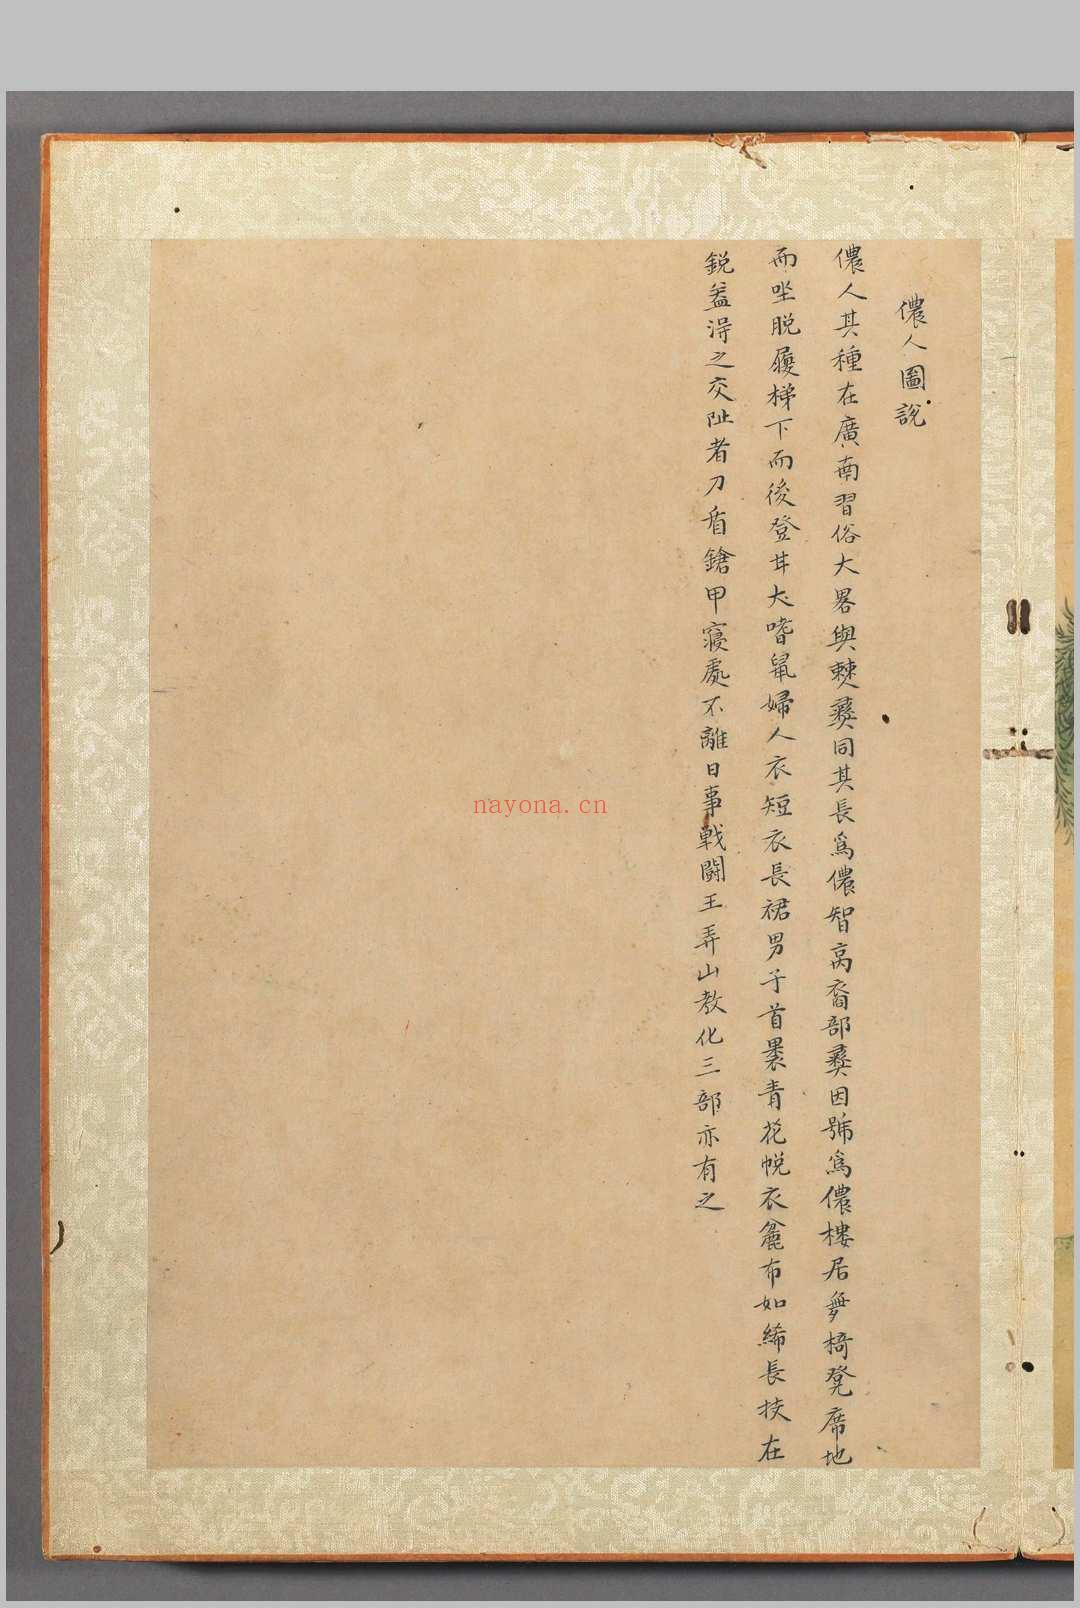 儂人圖說
儂人其種在廣南習俗大畧與僰彝同其長爲儂智高裔部彝因號爲儂樓居無椅凳席地
而坐脫履梯下而後登甘犬嗜鼠婦人衣短衣長裙男子首裹青花帨衣麄布如絺長技在
銳盖淂之交阯者刀盾鎗甲寢處不離日事戰鬪王弄山教化三部亦有之
nayona.cn